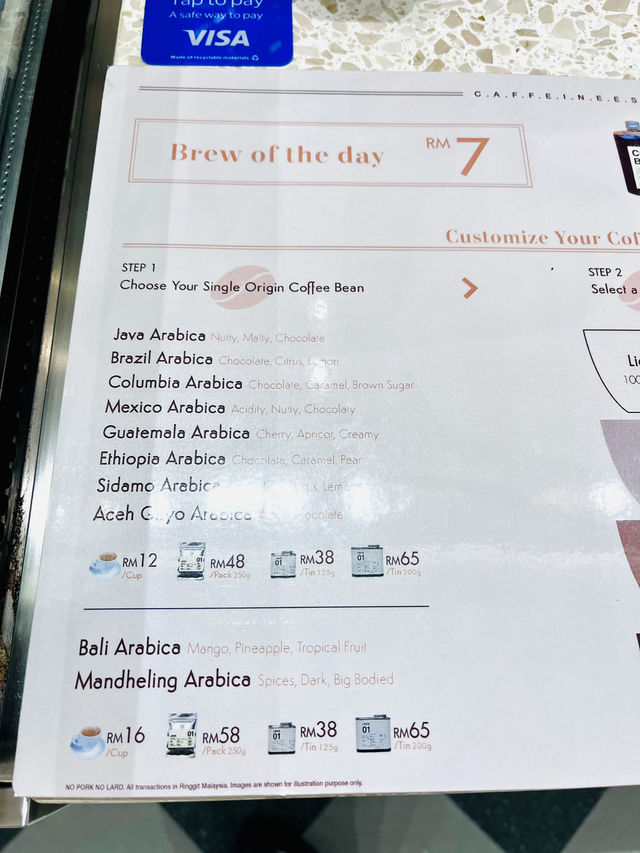 Tap to pay
A safe way to pay
VISA
Made of recyclable materials
C.A.F.F.E.I.N.E.E.S
Brew of the day RM 7
Customize Your Cof
STEP 1
Choose Your Single Origin Coffee Bean
STEP 2
Select a
Java Arabica Nutty, Malty, Chocolate
Brazil Arabica Chocolate, Citrus, Lemon
Columbia Arabica Chocolate, Caramel, Brown Sugar
Mexico Arabica Acidity, Nutty, Chocolaty
Guatemala Arabica Cherry, Apricot, Creamy
Ethiopia Arabica Chocolate, Caramel, Pear
Sidamo Arabica
Aceh Gayo Arabica Chocolate
RM12 /Cup RM48 /Pack 250g RM38 /Tin 125g RM65 /Tin 200g
Bali Arabica Mango, Pineapple, Tropical Fruit
Mandheling Arabica Spices, Dark, Big Bodied
RM16 /Cup RM58 /Pack 250g RM38 /Tin 125g RM65 /Tin 200g
NO PORK NO LARD. All transactions in Ringgit Malaysia. Images are shown for illustration purpose only.